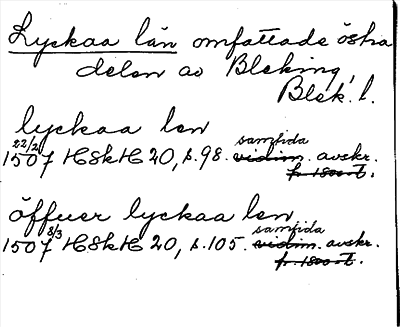 Lyckaa län omfattade östra
delen av Bleking,
Blek. l.
lyckaa len
22/2 samtida
1507 HSkH 20, s. 98. vidim. avskr.
fr. 1800-t.
öffuer lyckaa len
8/3 samtida
1507 HSkH 20, s. 105. vidim. avskr.
fr. 1800-t.